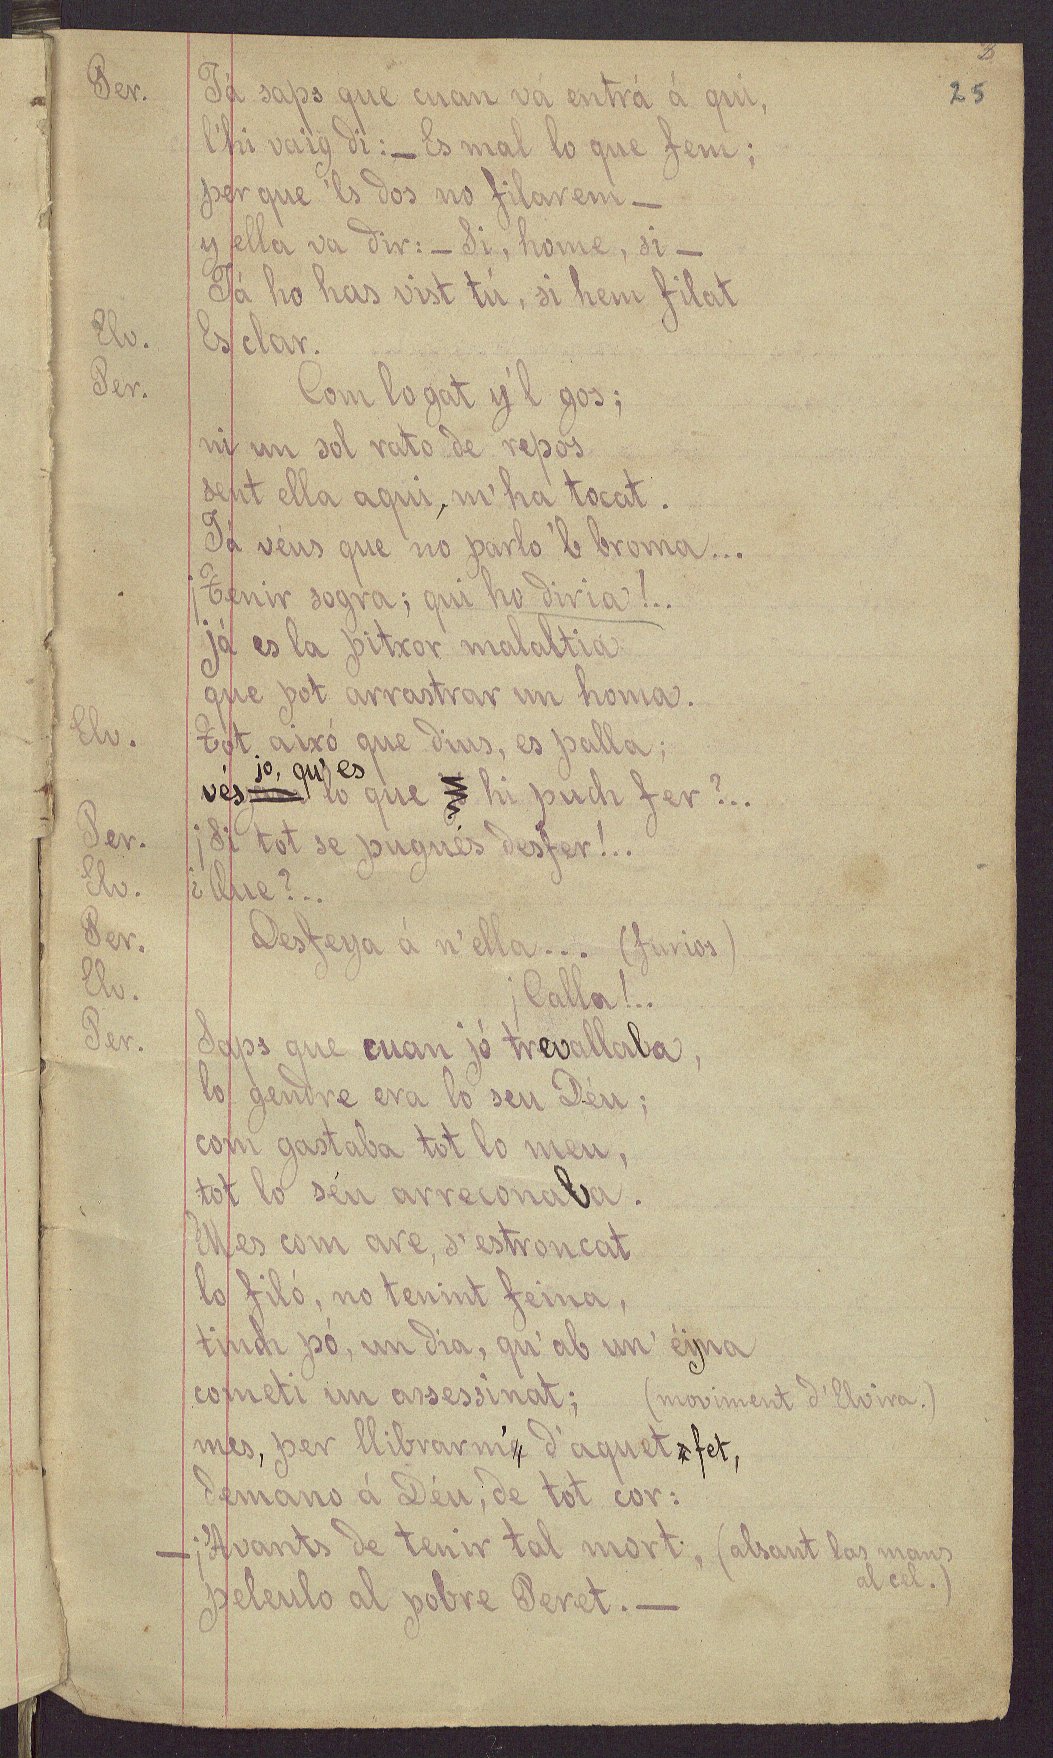 25
Per. Já saps que cuan vá entrá á qui,
l'hi vaig di: — Es mal lo que fem;
per que 'ls dos no filarem —
y ella va dir: — Si, home, si —
Já ho has vist tú, si hem filat
Elv. Es clar.
Per. Com lo gat y 'l gos;
ni un sol rato de repós
sent ella aqui, m'ha tocat.
Já véus que no parlo 'b broma...
¡Tenir sogra; qui ho diria!..
já es la pitxor malaltia
que pot arrastrar un homa.
Elv. Tót aixó que dius, es palla;
jo, qu' es
vés lo que hi puch fer?...
Per. ¡Si tot se pugués desfer!..
Elv. ¿Que?...
Per. Desfeya á n'ella... (furios)
Elv. ¡Calla!..
Per. Saps que cuan jó trevallaba,
lo gendre era lo seu Déu;
com gastaba tot lo meu,
tot lo séu arreconaba.
Mes com are, s'estroncat
lo filó, no tenint feina,
tinch pó, un dia, qu' ab un' éyna
cometi un assessinat; (moviment d'Elvira.)
mes, per llibrarm' d'aquet fet,
demano á Déu, de tot cor:
— ¡Avants de tenir tal mort, (alsant las mans
al cel.)
peleulo al pobre Peret. —